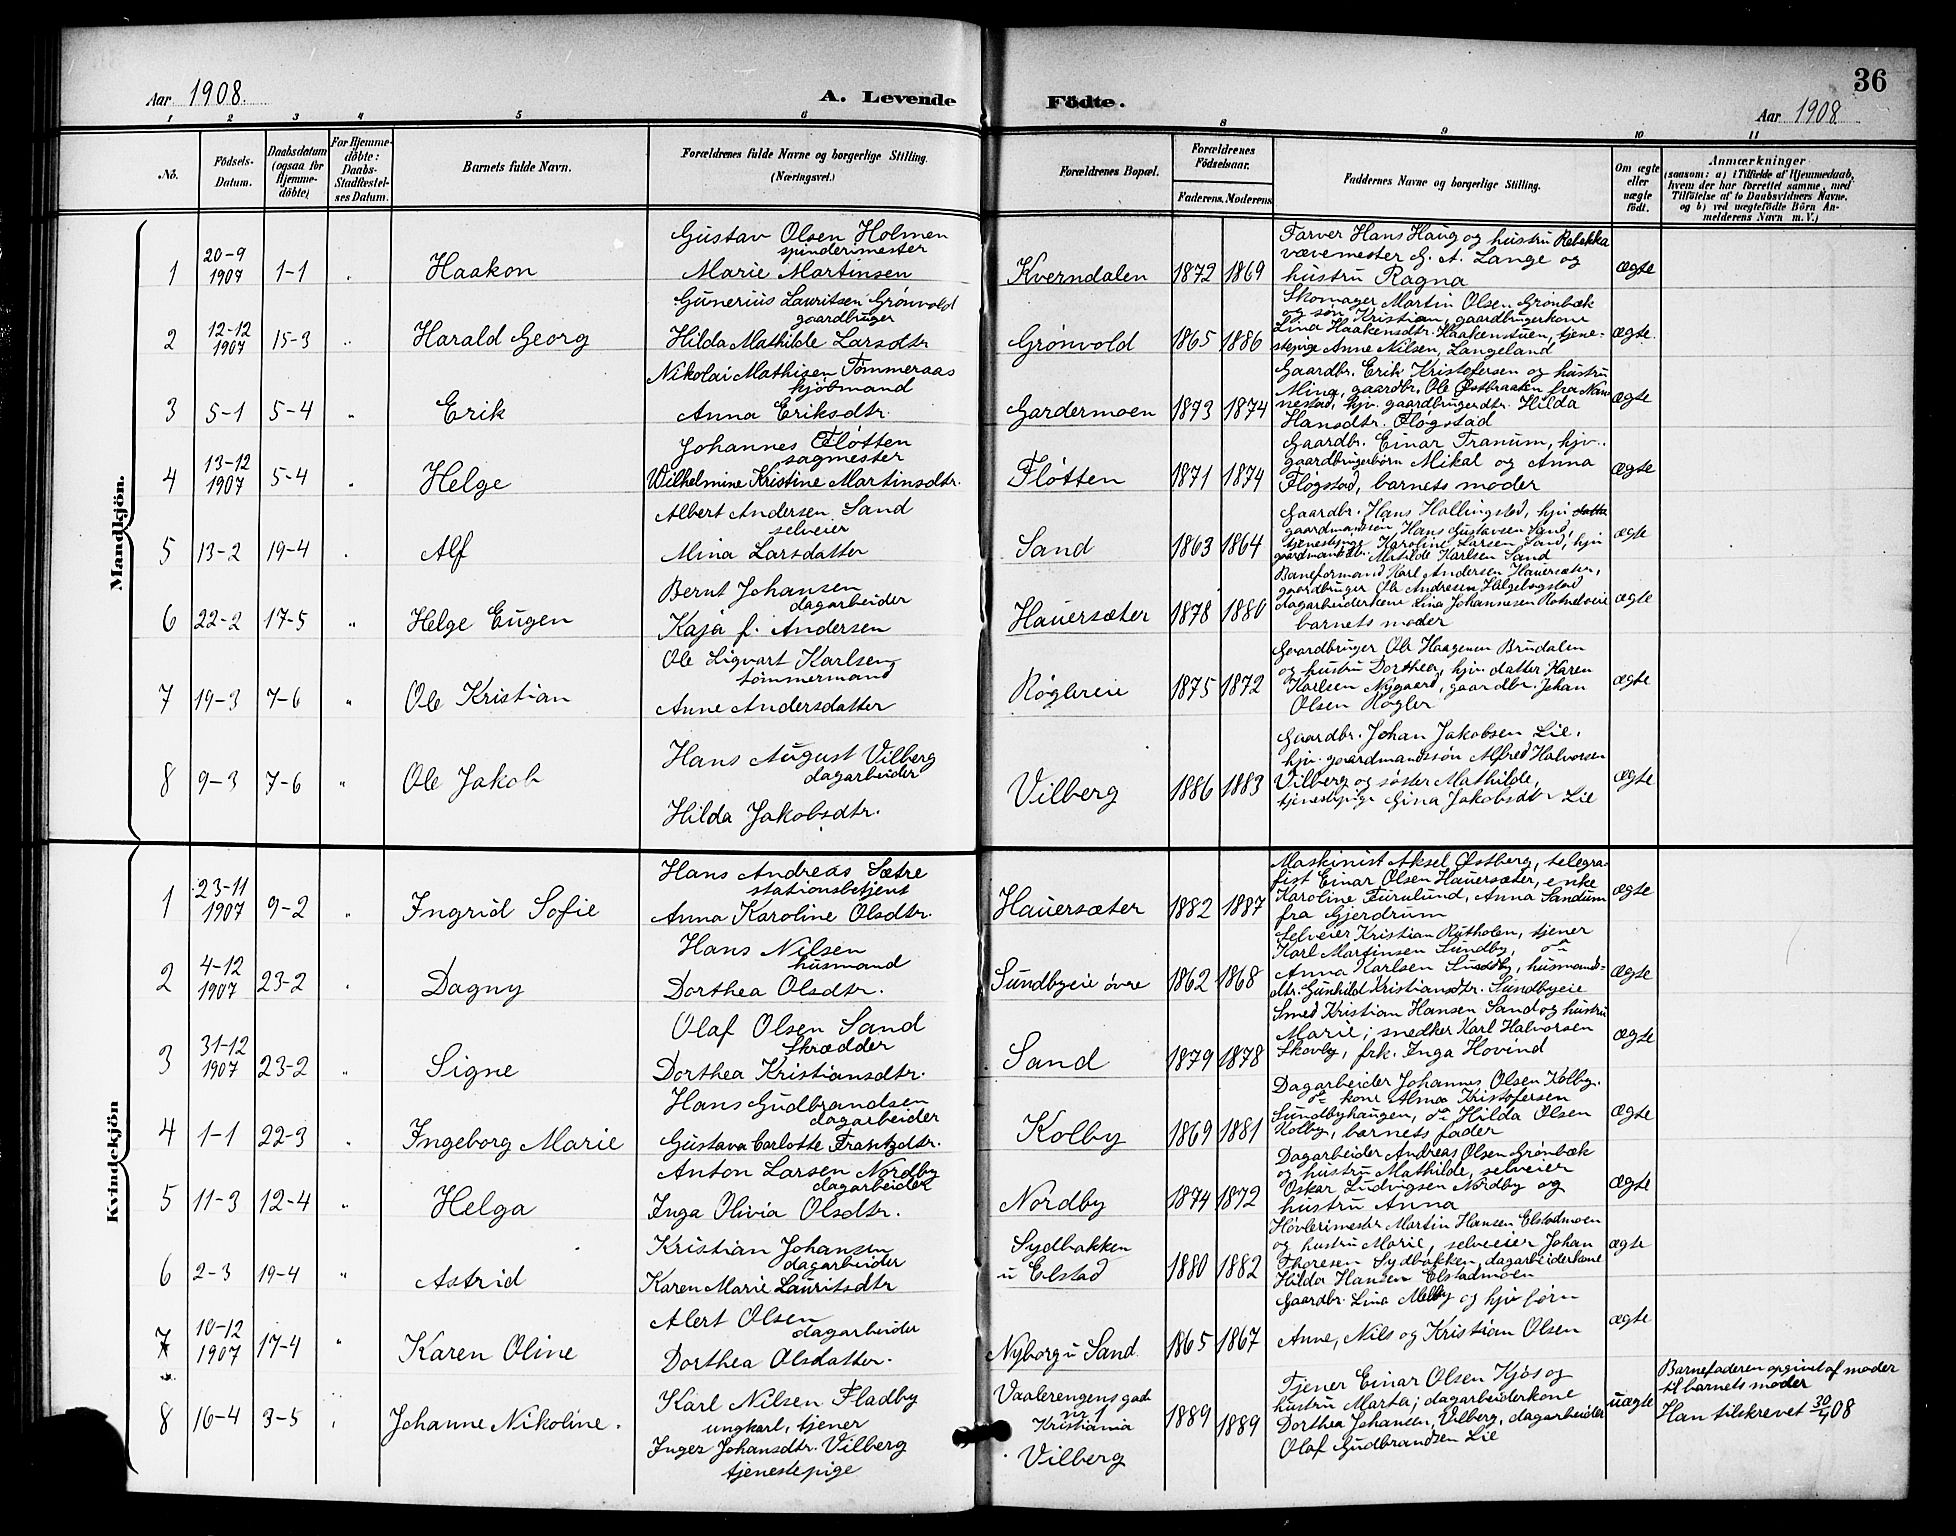 36
Aar 1908.
A. Levende Födte.
Aar 1908.
1 2 3 4 5 6 8 9 10 11
No.
Födsels-Datum.
Daabsdatum (ogsaa for Hjemme-döbte)
For Hjemme-döbte: Daabs-Stadfæstel-ses Datum.
Barnets fulde Navn.
Forældrenes fulde Navne og borgerlige Stilling. (Næringsvei.)
Forældrenes Bopæl.
Forældrenes Födselsaar.
Faderens. Moderens.
Faddernes Navne og borgerlige Stilling.
Om ægte eller uægte födt.
Anmærkninger
(saasom: a) i Tilfælde af Hjemmedaab,
hvem der har forrettet samme, med
Tilföielse af to Daabsvidners Navne.
og b) ved uægtefödte Börn An-
melderens Navn m. V.)
Mandkjön.
1 20-9 1907 1-1 " Haakon
Gustav Olsen Holmen
spinderimester
Marie Martinsen
Kverndalen 1872 1869
Farver Hans Haug og hustru Rebekka
vævemester G. A. Lange og
hustru Ragna
ægte
2 12-12 1907 15-3 " Harald Georg
Gunerius Lauritsen Grønvold
gaardbruger
Hilda Mathilde Larsdtr
Grønvold 1865 1886
Skomager Martin Olsen Grønbæk
og søn Kristian, gaardbrugerkone
Lina Haakensdtr. Haakenstuen, tjene-
stepige Anne Nilsen, Langeland
ægte
3 5-1 5-4 " Erik
Nikolai Mathisen Tømmeraas
kjøbmand
Anna Eriksdtr.
Gardermoen 1873 1874
Gaardbr. Erik Kristofersen og hustru
Mina, gaardbr. Ole Østbraaten fra Nan-
nestad, hjv. gaardbrugerdtr. Hilda
Hansdtr. Fløgstad
ægte
4 13-12 1907 5-4 " Helge
Johannes Fløtten
sagmester
Wilhelmine Kristine Martinsdtr.
Fløtten 1871 1874
Gaardbr. Einar Tranum, hjv.
gaardbrugerbørn Mikal og Anna
Fløgstad, barnets moder
ægte
5 13-2 19-4 " Alf
Albert Andersen Sand
selveier
Mina Larsdatter
Sand 1863 1864
Gaardbr. Hans Hallingstad, hjv.
gaardmandssøn Hans Gustavsen Sand,
tjenestepige Karoline Larsen Sand, hjv
gaardmandsdtr. Matilde Karlsen Sand
ægte
6 22-2 17-5 " Helge Eugen
Bernt Johansen
dagarbeider
Kaja f. Andersen
Hauersæter 1878 1880
Baneformand Karl Andersen Hauersæter,
gaardbruger Ole Andresen Helgebogstad
dagarbeiderkone Lina Johannesen
barnets moder
ægte
7 19-3 7-6 " Ole Kristian
Ole Sigvart Karlsen
tømmermand
Anne Andersdatter
Røglereie 1875 1872
Gaardbruger Ole Haagensen Brudalen
og hustru Dorthea, hjv. datter Karen
Karlsen Nygaard, gaardbr. Johan
Olsen Røgler
ægte
8 9-3 7-6 " Ole Jakob
Hans August Vilberg
dagarbeider
Hilda Jakobsdtr.
Vilberg 1886 1883
Gaardbr. Johan Jakobsen Lie,
hjv. gaardmandssøn Alfred Halvorsen
Vilberg og søster Mathilde,
tjenestepige Gina Jakobsdtr Lie
ægte
Kvindekjön
1 23-11 1907 9-2 " Ingrid Sofie
Hans Andreas Sætre
stationsbetjent
Anna Karoline Olsdtr.
Hauersæter 1882 1887
Maskinist Aksel Østberg, telegra-
fist Einar Olsen Hauersæter, enke
Karoline Furulund, Anna Sandum
fra Gjerdrum
ægte
2 4-12 1907 23-2 " Dagny
Hans Nilsen
husmand
Dorthea Olsdtr.
Sundbyeie øvre 1862 1868
Selveier Kristian Rutholen, tjener
Karl Martinsen Sundby, do
Anna Karlsen Sundby, husmands-
dtr. Gunhild Kristiansdtr. Sundbyeie
ægte
3 31-12 1907 23-2 " Signe
Olaf Olsen Sand
Skrædder
Dorthea Kristiansdtr.
Sand 1879 1878
Smed Kristian Hansen Sand og hustru
Marie; snedker Karl Halvorsen
Skovly, frk. Inga Hovind
ægte
4 1-1 22-3 " Ingeborg Marie
Hans Gudbrandsen
dagarbeider
Gustava Carlotte Frantzdtr.
Kolby 1869 1881
Dagarbeider Johannes Olsen Kolby.
do kone Alma Kristofersen
Sundbyhaugen, do Hilda Olsen
Kolby, barnets fader
ægte
5 11-3 12-4 " Helga
Anton Larsen Nordby
dagarbeider
Inga Olivia Olsdtr.
Nordby 1874 1872
Dagarbeider Andreas Olsen Grønbæk
og hustru Mathilde, selveier
Oskar Ludvigsen Nordby og
hustru Anna
ægte
6 2-3 19-4 " Astrid
Kristian Johansen
dagarbeider
Karen Marie Lauritsdtr
Sydbakken
u Elstad 1880 1882
Høvlerimester Martin Hansen Elstadmoen
og hustru Marie, selveier Johan
Thoresen Sydbakken, dagarbeiderkone
Hilda Hansen Elstadmoen
ægte
7 10-12 1907 17-4 " Karen Oline
Alert Olsen
dagarbeider
Dorthea Olsdatter.
Nyborg u Sand. 1865 1867
Gaardbr. Lina Melby og hjv børn
Anne, Nils og Kristian Olsen
ægte
8 16-4 3-5 " Johanne Nikoline.
Karl Nilsen Fladby
ungkarl, tjener
Inger Johansdtr. Vilberg
tjenestepige
Vaalerengens gad
Kristiania
Vilberg 1889 1889
Tjener Einar Olsen Kjøs og
hustru Marta; dagarbeiderkone
Dorthea Johansen, Vilberg, dagarbeider
Olaf Gudbrandsen Lie
uægte
Barnefaderen opgivet af moder
til barnets moder
Han tilskrevet 30/4 08